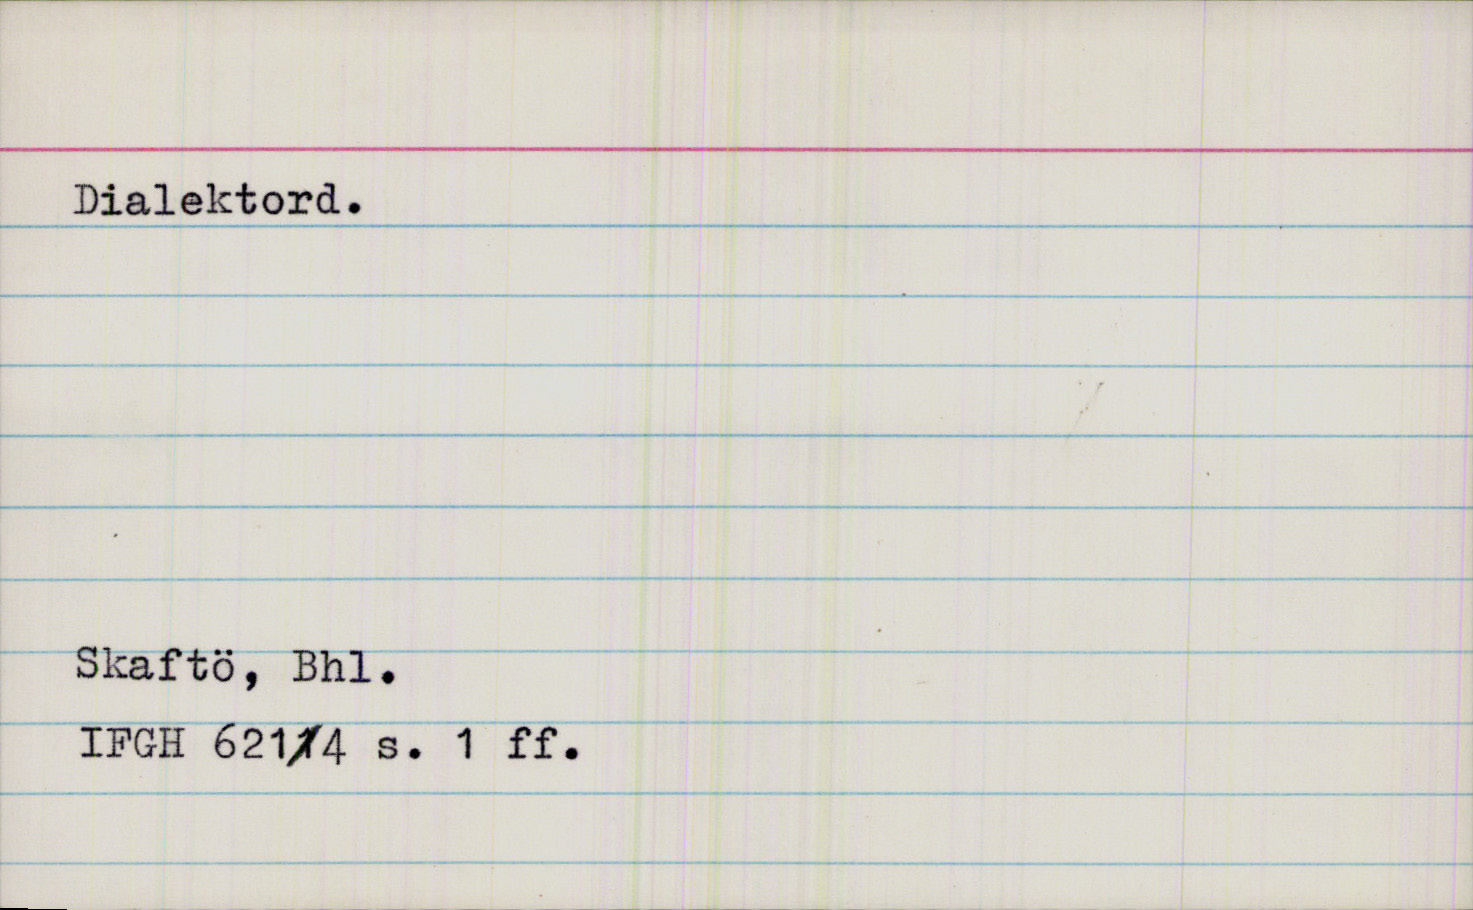 Dialektord.
Skaftö, Bhl.
IFGH 6214 s. 1 ff.